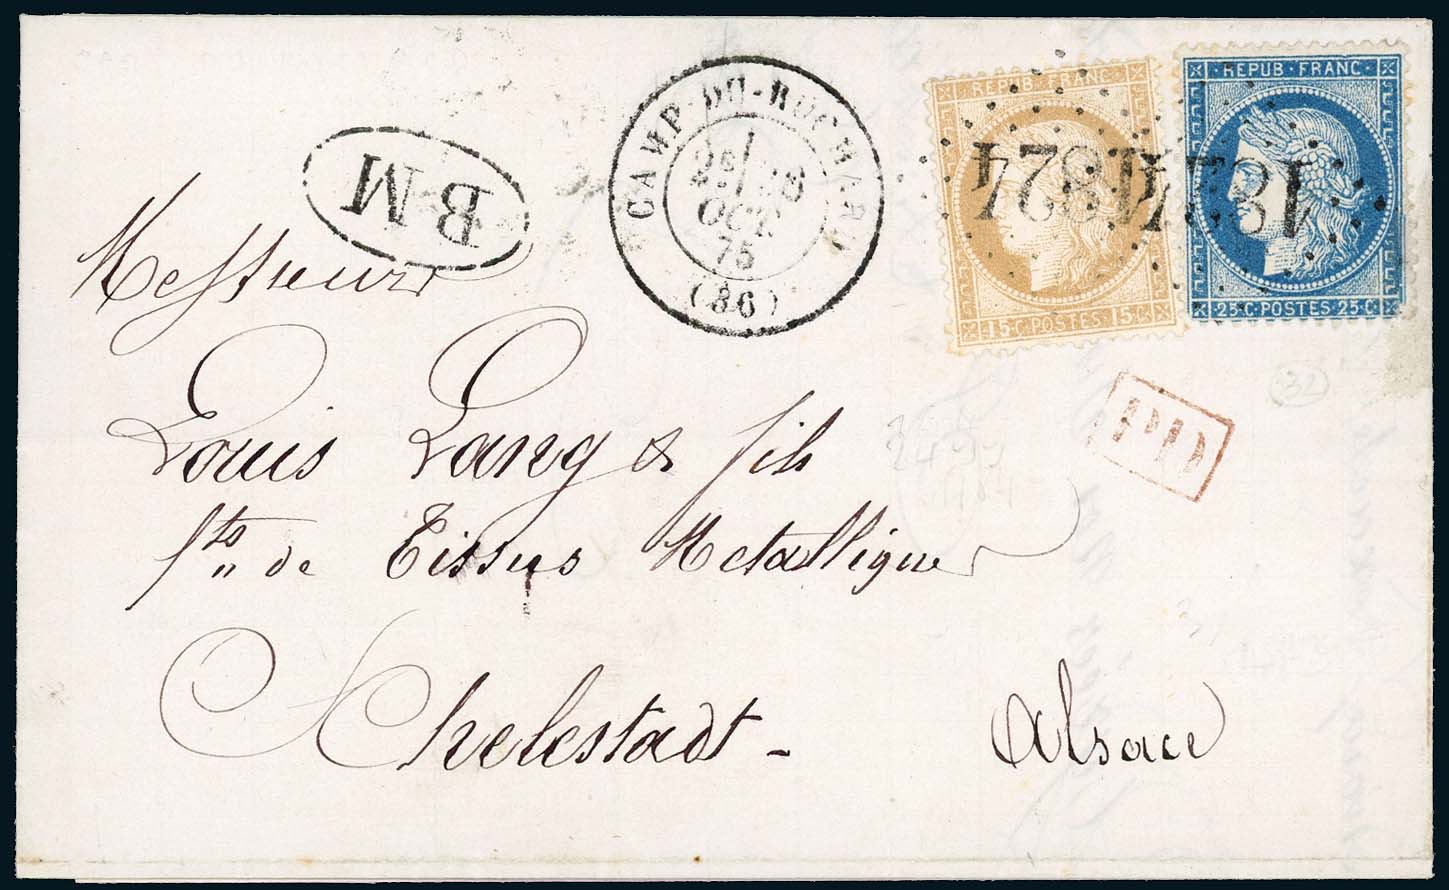 CAMP-DU-RUCHARD
2E
OCT
75
(36)
B M
REPUB·FRANC·
15·C·POSTES·15·C·
REPUB·FRANC·
25·C·POSTES·25·C·
PD
32
Messieurs
Louis Lang & fils
fts de Tissus Metalliques
Schelestadt -
Alsace